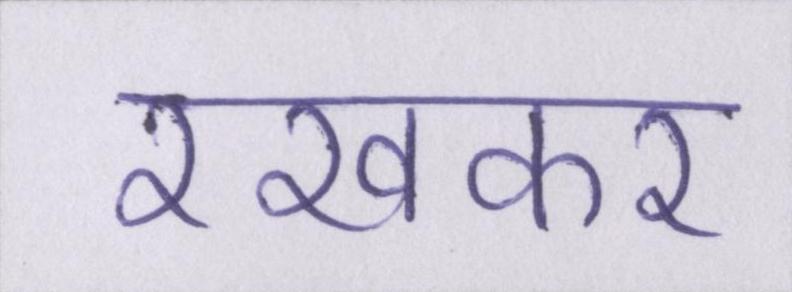 रखकर